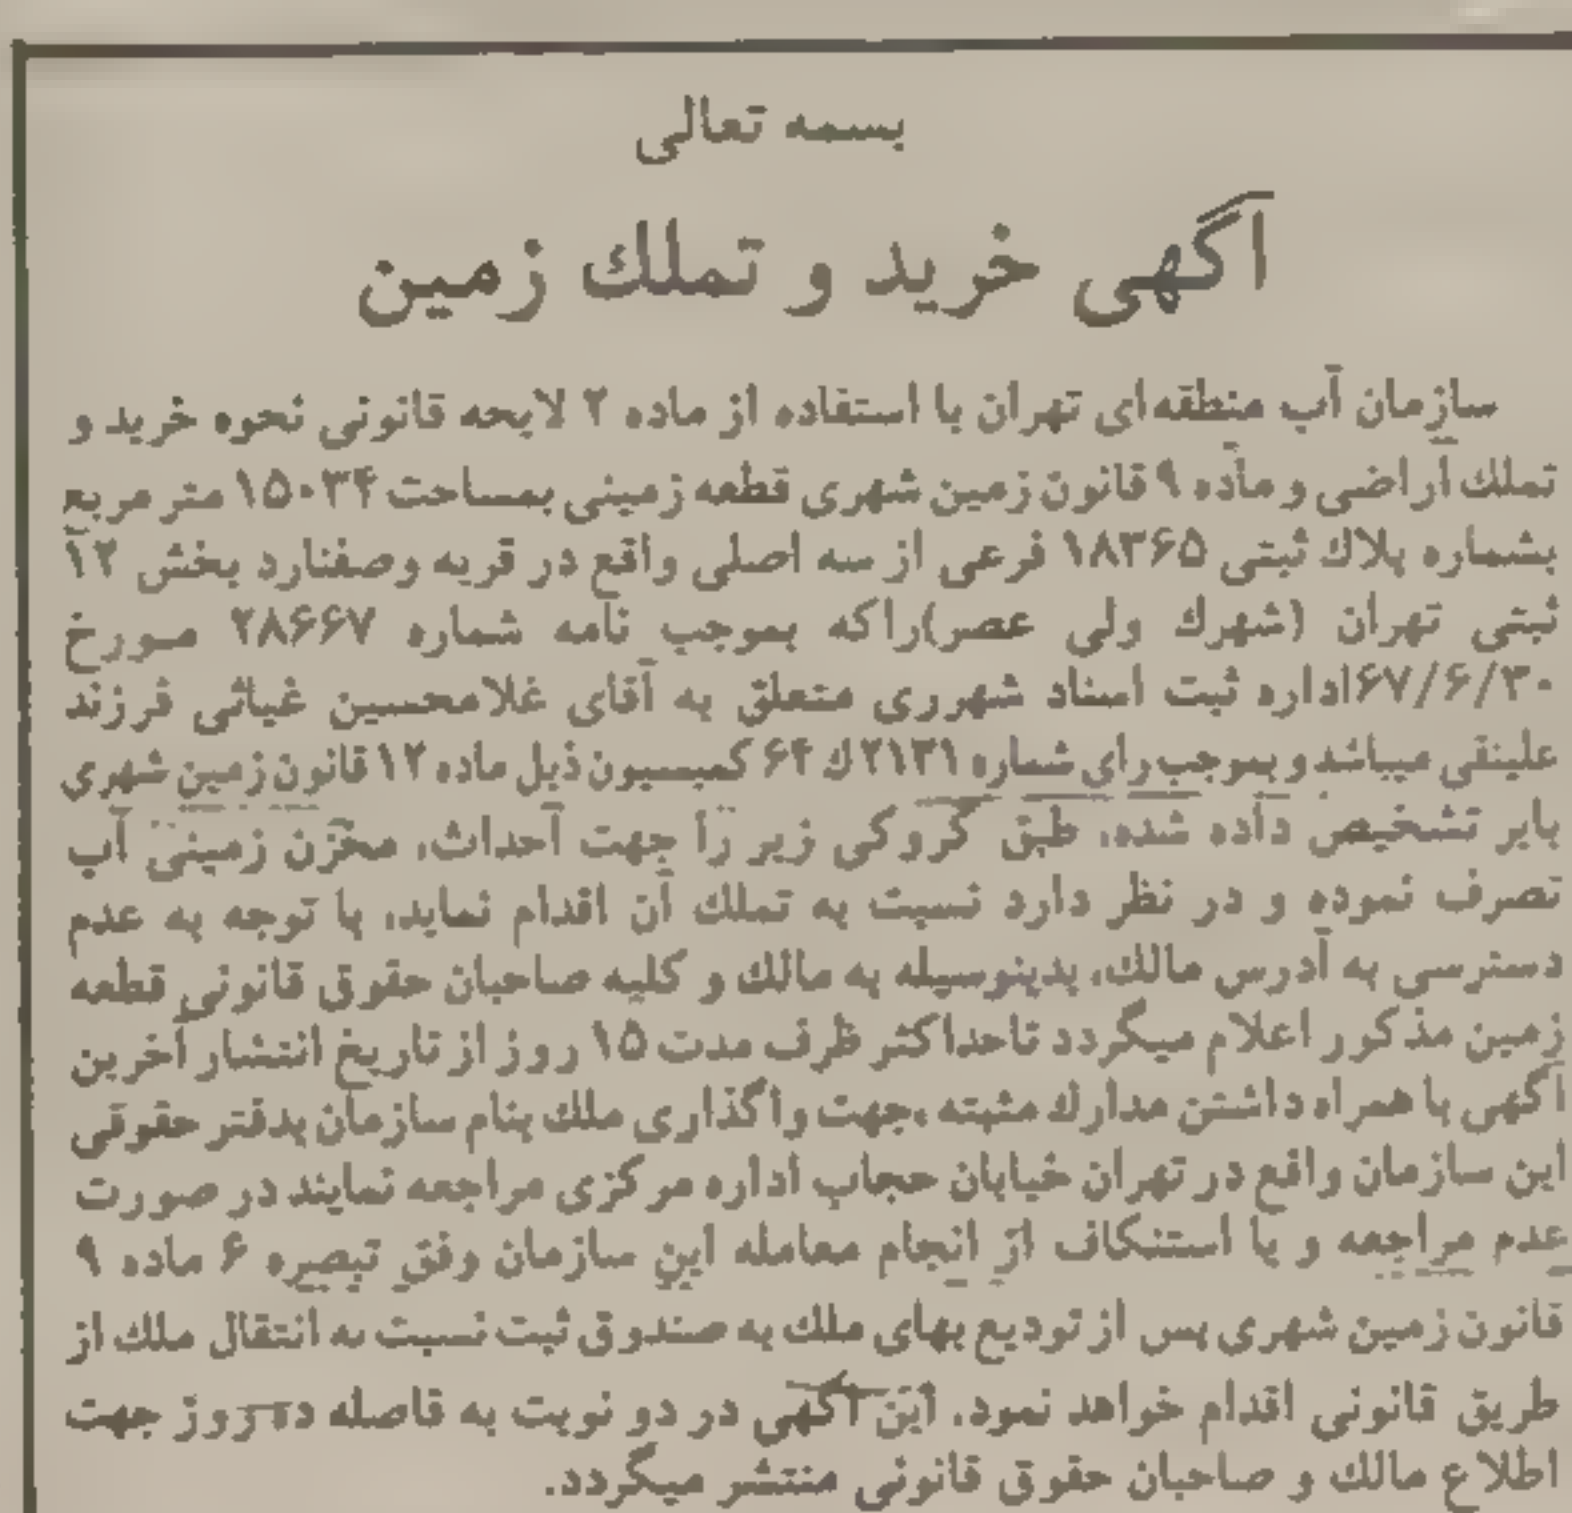 بسمه تعالی
آگهی خرید و تملك زمین
سازمان آب منطقه‌ای تهران با استفاده از ماده ۲ لایحه قانونی نحوه خرید و
تملك اراضی و ماده ۹ قانون زمین شهری قطعه زمینی بمساحت ۱۵۰۳۴ متر مربع
بشماره پلاك ثبتی ۱۸۳۶۵ فرعی از سه اصلی واقع در قریه وصفنارد بخش ۱۲
ثبتی تهران (شهرك ولی عصر)راکه بموجب نامه شماره ۲۸۶۶۷ مورخ
۶۷/۶/۳۰اداره ثبت اسناد شهرری متعلق به آقای غلامحسین غیاثی فرزند
علینقی میباشد و بموجب رای شماره ۲۱۳۱ك ۶۴ کمیسیون ذیل ماده ۱۲ قانون زمین شهری
بایر تشخیص داده شده، طبق کروکی زیر را جهت احداث، مخزن زمینی آب
تصرف نموده و در نظر دارد نسبت به تملك آن اقدام نماید، با توجه به عدم
دسترسی به آدرس مالك، بدینوسیله به مالك و کلیه صاحبان حقوق قانونی قطعه
زمین مذکور اعلام میگردد تاحداکثر ظرف مدت ۱۵ روز از تاریخ انتشار آخرین
آگهی با همراه داشتن مدارك مثبته ،جهت واگذاری ملك بنام سازمان بدفتر حقوقی
این سازمان واقع در تهران خیابان حجاب اداره مرکزی مراجعه نمایند در صورت
عدم مراجعه و یا استنکاف از انجام معامله این سازمان وفق تبصره ۶ ماده ۹
قانون زمین شهری پس از تودیع بهای ملك به صندوق ثبت نسبت به انتقال ملك از
طریق قانونی اقدام خواهد نمود. این آگهی در دو نوبت به فاصله ده روز جهت
اطلاع مالك و صاحبان حقوق قانونی منتشر میگردد.